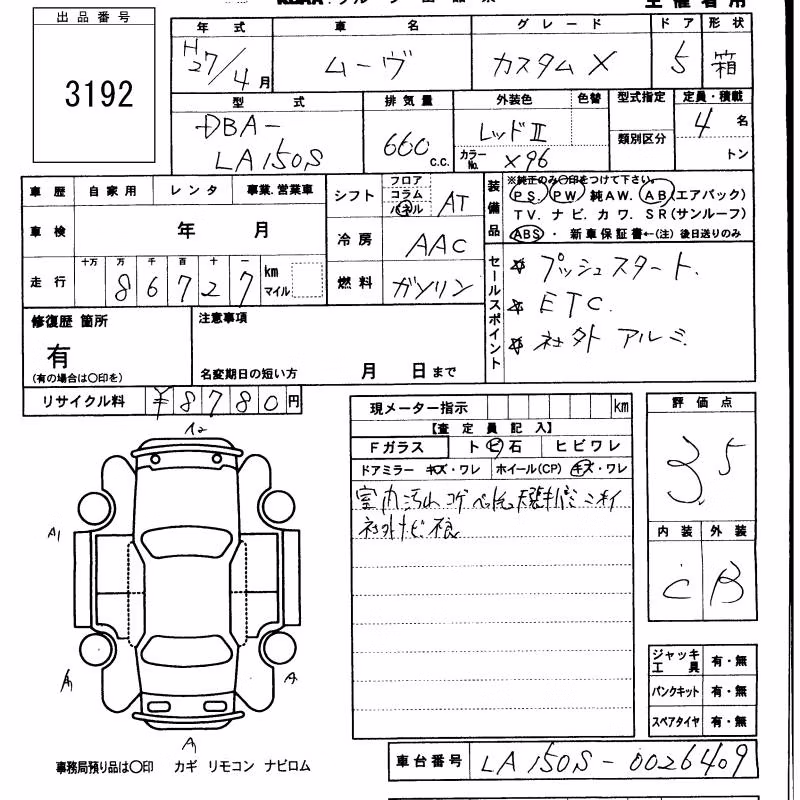 出品番号
3192
年式 車名 グレード ドア 形状
H27/4月 ムーヴ カスタムX 5 箱
型式 排気量 外装色 色替 型式指定 定員・積載
DBA- 660 c.c. レッドⅡ 類別区分 4 名
LA150S カラーNo. X96 トン
車歴 自家用 レンタ 事業.営業車
車検 年 月
走行 十万 万 千 百 十 一 km マイル
86727
シフト フロア コラム パネル AT
冷房 AAC
燃料 ガソリン
装備品
※純正のみ〇印をつけて下さい。
PS. PW. 純AW. AB(エアバック)
TV. ナビ. カワ. SR(サンルーフ)
ABS ・ 新車保証書←(注) 後日送りのみ
セールスポイント
☆ プッシュスタート.
☆ ETC.
☆ 社外アルミ.
修復歴 箇所
有
(有の場合は〇印を)
注意事項
名変期日の短い方 月 日まで
リサイクル料 ¥8780円
現メーター指示 km
【査定員記入】
Fガラス ト ビ 石 ヒビワレ
ドアミラー キズ・ワレ ホイール(CP) キズ・ワレ
室内汚れ コゲ
社外ナビ 有
評価点
3.5
内装 外装
C B
A2
A1
A
A
A1
ジャッキ工具 有・無
パンクキット 有・無
スペアタイヤ 有・無
事務局預り品は〇印 カギ リモコン ナビロム
車台番号 LA150S-0026409